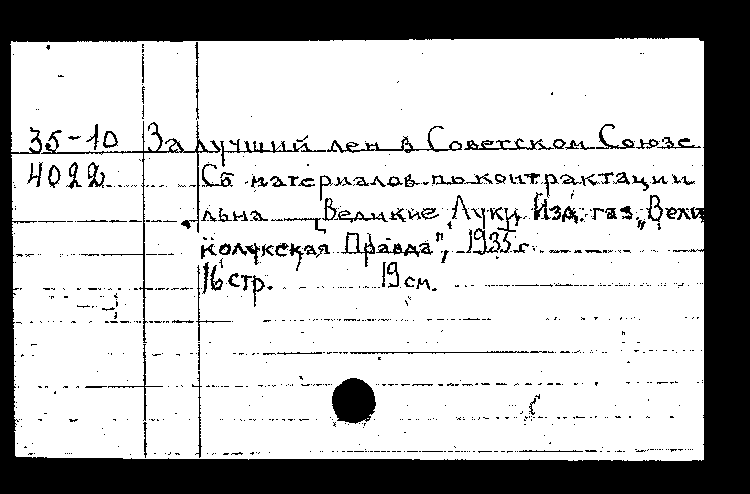 35-10 За лучший лен в Советском Союзе
4022 Сб материалов по контрактации
льна Великие Луки, Изд. газ. „Вели
колукская Правда", 1935 г.
16 стр. 19 см.